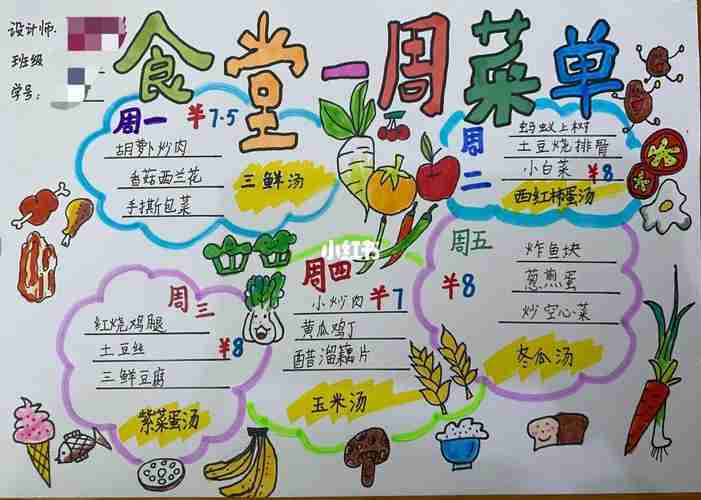 食堂一周菜单
设计师:
班级
学号:
周一 ¥7.5
胡萝卜炒肉
香菇西兰花
手撕包菜
三鲜汤
周二
蚂蚁上树
土豆烧排骨
小白菜 ¥8
西红柿蛋汤
周三
红烧鸡腿
土豆丝 ¥8
三鲜豆腐
紫菜蛋汤
周四
小炒肉 ¥7
黄瓜鸡丁
醋溜藕片
玉米汤
周五
¥8
炸鱼块
葱煎蛋
炒空心菜
冬瓜汤
小红书